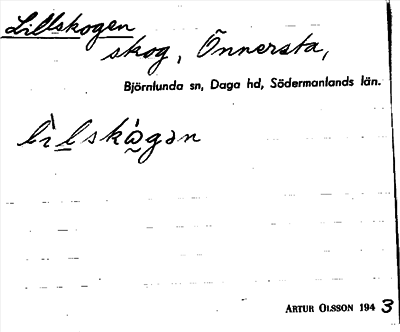 Lillskogen
skog, Önnersta,
Björnlunda sn, Daga hd, Södermanlands län.
ARTUR OLSSON 1943